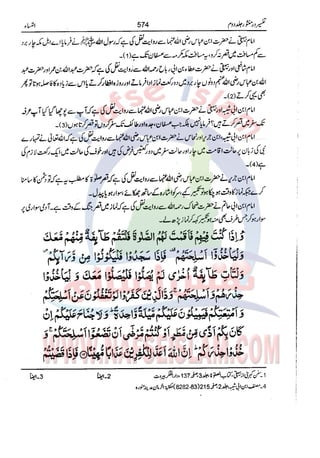 تفسیر درمنثور جلد دوم 574 النساء
امام بیہقی نے حضرت ابن عباس رضی اللہ عنہما سے روایت نقل کی ہے کہ رسول اللہ ﷺ نے فرمایا اے اہل مکہ چار برد
سے کم مسافت میں قصر نہ کرو یہ مسافت مکہ سے عسفان تک ہے (1)۔
امام شافعی اور بیہقی نے عطاء بن ابی رباح رحمہ اللہ سے روایت نقل کی ہے کہ حضرت عبد اللہ بن عمر اور حضرت عبد
اللہ بن عباس رضی اللہ عنہما چار برد میں دو رکعت نماز ادا کرتے اور روزہ افطار کرتے یا اس سے زیادہ کا سفر ہوتا تو پھر
بھی یہی کرتے (2)۔
امام ابن ابی شیبہ اور بیہقی نے حضرت ابن عباس رضی اللہ عنہما سے روایت نقل کی ہے کہ آپ سے پوچھا گیا کیا آپ عرفہ
تک سفر میں قصر کرتے ہیں؟ فرمایا نہیں بلکہ جب عسفان، جدہ اور طائف تک سفر کروں تو قصر کرتے ہیں (3)۔
امام ابن ابی شیبہ، ابن جریر اور نحاس نے حضرت ابن عباس رضی اللہ عنہما سے روایت نقل کی ہے کہ اللہ تعالیٰ نے تمہارے
نبی کی زبان پر حالت اقامت میں چار اور حالت سفر میں دو رکعتیں فرض کی ہیں اور خوف کی حالت میں ایک رکعت لازم کی
ہے (4)۔
امام ابن جریر نے حضرت ابن عباس رضی اللہ عنہما سے روایت نقل کی ہے کہ قصر صلوٰۃ کا مطلب یہ ہے کہ تو دشمن کا سامنا
کرے جبکہ نماز کا وقت ہو چکا ہو تو تکبیر کہے سر کو اشارہ کے ساتھ جھکائے سوار ہو یا پیدل۔
امام ابن ابی حاتم نے حضرت ضحاک رحمہ اللہ سے روایت نقل کی ہے کہ نماز میں قصر جنگ کے وقت ہے۔ آدمی سواری پر
سوار ہو کر جس طرف بھی منہ ہو تکبیر کہہ کر نماز پڑھ لے۔
وَ اِذَا كُنْتَ فِيْهِمْ فَاَقَمْتَ لَهُمُ الصَّلٰوةَ فَلْتَقُمْ طَآىِٕفَةٌ مِّنْهُمْ مَّعَكَ
وَ لْيَاْخُذُوْۤا اَسْلِحَتَهُمْ فَاِذَا سَجَدُوْا فَلْيَكُوْنُوْا مِنْ وَّرَآىِٕكُمْ
وَ لْتَاْتِ طَآىِٕفَةٌ اُخْرٰى لَمْ يُصَلُّوْا فَلْيُصَلُّوْا مَعَكَ وَ لْيَاْخُذُوْا
حِذْرَهُمْ وَ اَسْلِحَتَهُمْ وَدَّ الَّذِيْنَ كَفَرُوْا لَوْ تَغْفُلُوْنَ عَنْ اَسْلِحَتِكُمْ
وَ اَمْتِعَتِكُمْ فَيَمِيْلُوْنَ عَلَيْكُمْ مَّيْلَةً وَّاحِدَةً وَ لَا جُنَاحَ عَلَيْكُمْ اِنْ
كَانَ بِكُمْ اَذًى مِّنْ مَّطَرٍ اَوْ كُنْتُمْ مَّرْضٰۤى اَنْ تَضَعُوْۤا اَسْلِحَتَكُمْ وَ
خُذُوْا حِذْرَكُمْ اِنَّ اللّٰهَ اَعَدَّ لِلْكٰفِرِيْنَ عَذَابًا مُّهِيْنًا فَاِذَا قَضَيْتُمُ
1۔ سنن کبریٰ از بیہقی، کتاب الصلوٰۃ، جلد 3 صفحہ 137، دار الفکر بیروت 2۔ ایضاً 3۔ ایضاً
4۔ مصنف ابن ابی شیبہ، جلد 2 صفحہ 215 (8282-83) مکتبۃ الزمان مدینہ منورہ